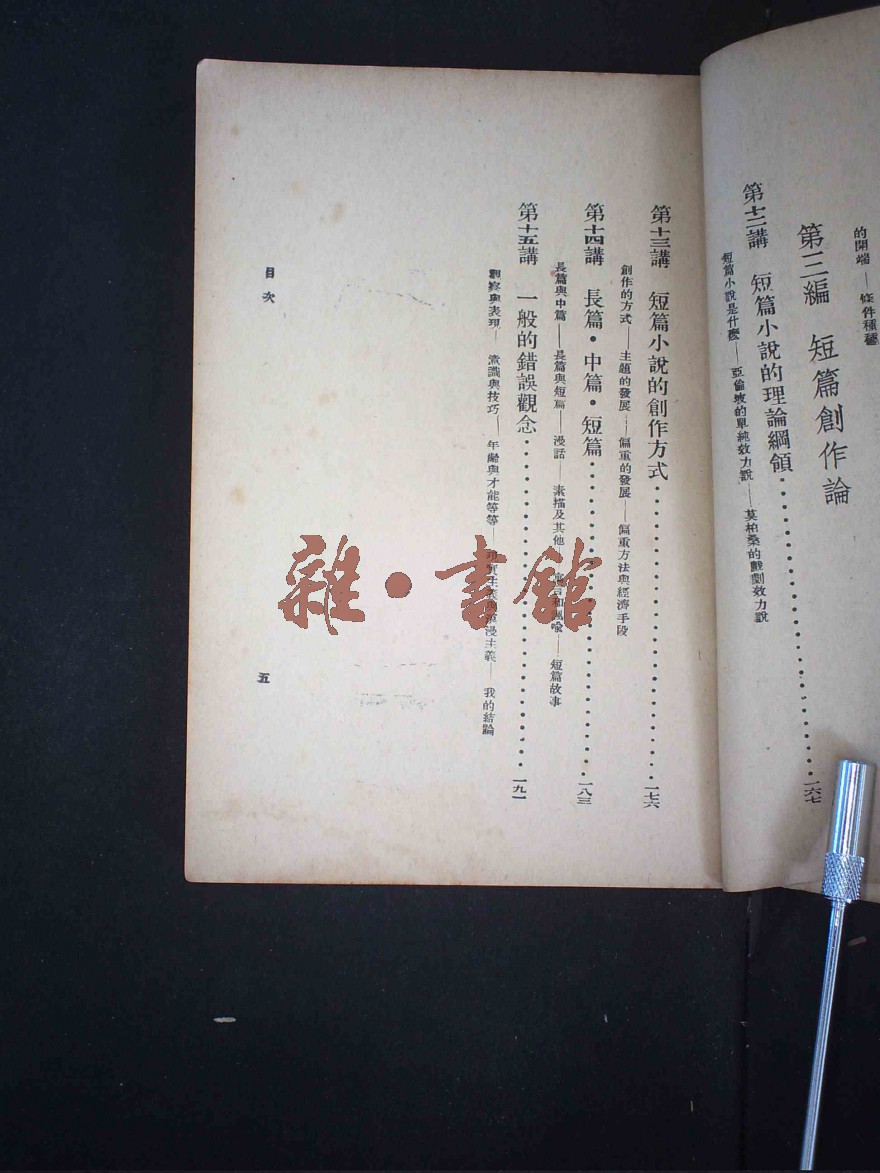 的開端——條件種種
第三編　短篇創作論
第十二講　短篇小說的理論綱領・・・・・・・・・・・・・・・・・・・・一六七
短篇小說是什麼——亞倫坡的單純效力說——莫柏桑的戲劇效力說
第十三講　短篇小說的創作方式・・・・・・・・・・・・・・・・・・・・一七六
創作的方式——主題的發展——偏重的發展——偏重方法與經濟手段
第十四講　長篇・中篇・短篇・・・・・・・・・・・・・・・・・・・・一八三
長篇與中篇——長篇與短篇——漫話——素描及其他——寓言和諷喻——短篇故事
第十五講　一般的錯誤觀念・・・・・・・・・・・・・・・・・・・・一九一
觀察與表現——常識與技巧——年齡與才能等等——主義——我的結論
目次
五
雜・書館